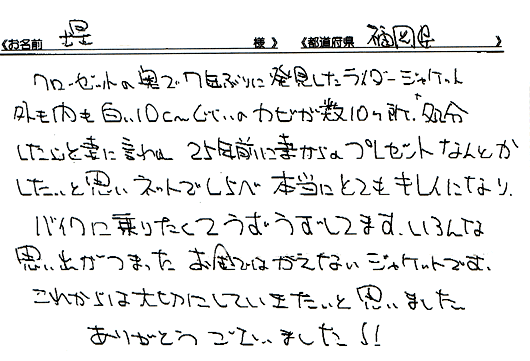 《お名前 堤 様》 《都道府県 福岡県 》
クローゼットの奥で7年ぶりに発見したライダージャケット
外も内も白い10cmぐらいのカビが数10ヶ所、処分
したらと妻に言われ 25年前に妻からのプレゼントなんとか
したいと思いネットでしらべ 本当にとてもキレイになり、
バイクに乗りたくてうずうずしてます。いろんな
思い出がつまった お金ではかえない ジャケットです。
これからは大切にしていきたいと思いました。
ありがとうございました!!